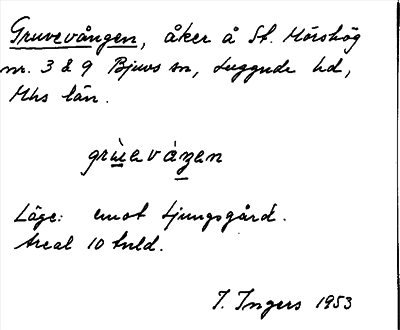 Gruvevången, åker å St. Mörshög
nr. 3 & 9 Bjuvs sn, Luggude hd,
Mhs län.
grùeváŋen
Läge: emot Ljungsgård.
Areal 10 tnld.
I. Ingers 1953